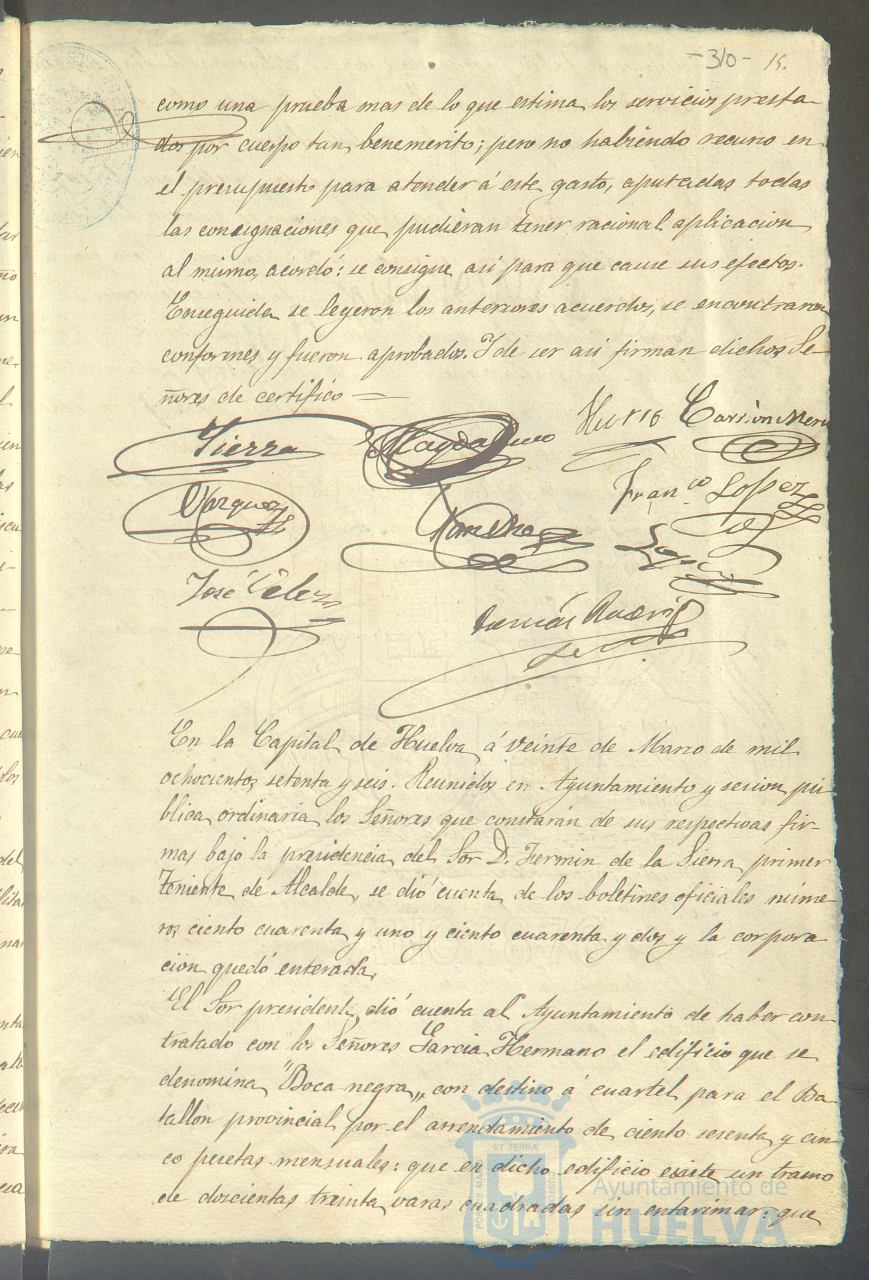 -310- 15.
como una prueba mas de lo que estima los servicios presta-
dos por cuerpo tan benemerito; pero no habiendo recurso en
el presupuesto para atender á este gasto, aputadas todas
las consignaciones que pudieran tener racional aplicacion
al mismo, acordó: se consigne asi para que cause sus efectos.
Enseguida se leyeron los anteriores acuerdos, se encontraron
conformes y fueron aprobados. Y de ser asi firman dichos Se-
ñores de certifico =
Sierra Magdaleno Carrion Mero
Vazquez Franco Lopez
José Velez
En la Capital de Huelva á veinte de Marzo de mil
ochocientos setenta y seis. Reunidos en Ayuntamiento y sesion pú-
blica ordinaria los Señores que constarán de sus respectivas fir-
mas bajo la presidencia del Sor D. Fermin de la Sierra, primer
Teniente de Alcalde, se dió cuenta de los boletines oficiales núme-
ros ciento cuarenta y uno y ciento cuarenta y dos y la corpora
cion quedó enterada.
El Sor president dió cuenta al Ayuntamiento de haber con-
tratado con los Señores Garcia Hermano el edificio que se
denomina "Boca negra" con destino á cuartel para el Ba-
tallon provincial por el arrendamiento de ciento sesenta y cin
co pesetas mensuales: que en dicho edificio existe un tramo
de doscientas treinta varas cuadradas sin entarimar: que
ET TERRÆ
Ayuntamiento de
HUELVA